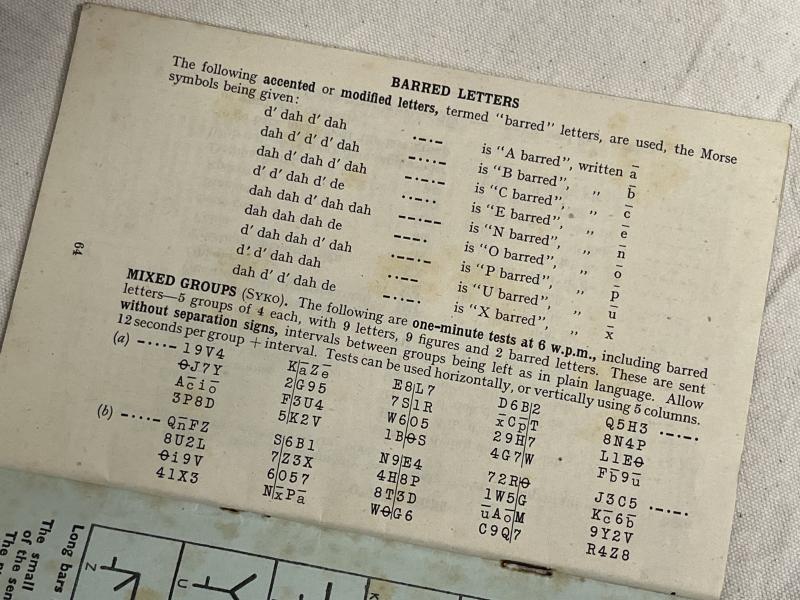 BARRED LETTERS
The following accented or modified letters, termed "barred" letters, are used, the Morse
symbols being given:
d' dah d' dah ·–·– is "A barred", written a̅
dah d' d' d' dah –···– is "B barred", ,, b̅
dah d' dah d' dah –·–·– is "C barred", ,, c̅
d' d' dah d' de ··–·· is "E barred", ,, e̅
dah dah d' dah dah ––·–– is "N barred", ,, n̅
dah dah dah de –––· is "O barred", ,, o̅
d' dah dah d' dah ·––·– is "P barred", ,, p̅
d' d' dah dah ··–– is "U barred", ,, u̅
dah d' d' dah de –··–· is "X barred", ,, x̅
64
MIXED GROUPS (SYKO). The following are one-minute tests at 6 w.p.m., including barred
letters—5 groups of 4 each, with 9 letters, 9 figures and 2 barred letters. These are sent
without separation signs, intervals between groups being left as in plain language. Allow
12 seconds per group + interval. Tests can be used horizontally, or vertically using 5 columns.
(a) –····– 19V4 Ka̅Ze̅ E8L7 D6B2 Q5H3 ––·–·–
ΘJ7Y 2G95 7S1R x̅Cp̅T 8N4P
Ac̅io̅ F3U4 W605 29H7 L1EΘ
3P8D 5K2V 1BΘS 4G7W Fb̅9u̅
(b) –····– Qn̅FZ S6B1 N9E4 72RΘ J3C5 ––···–
8U2L 7Z3X 4H8P 1W5G Kc̅6b̅
Θi9V 6057 8T3D u̅Ao̅M 9Y2V
41X3 Nx̅Pa̅ WΘG6 C9Q7 R4Z8
Long bars
The small
of the sen
Z
U
K